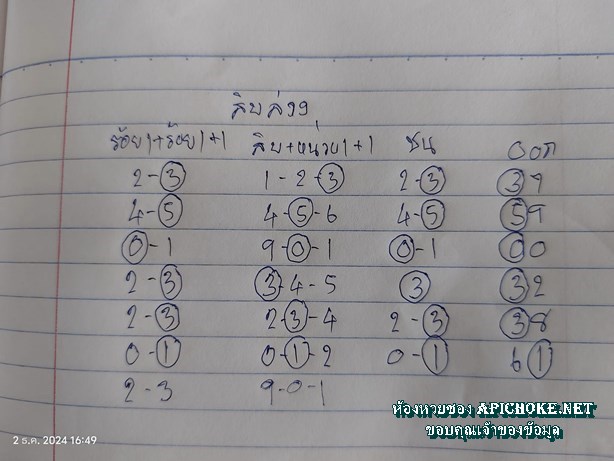 สิบล่าง
ร้อย1+ร้อย1+1 สิบ+หน่วย1+1 ชน ออก
2-3 1-2-3 2-3 39
4-5 4-5-6 4-5 59
0-1 9-0-1 0-1 00
2-3 3-4-5 3 32
2-3 2-3-4 2-3 38
0-1 0-1-2 0-1 61
2-3 9-0-1
ห้องหวยซอง APICHOKE.NET
ขอบคุณเจ้าของข้อมูล
2 ธ.ค. 2024 16:49